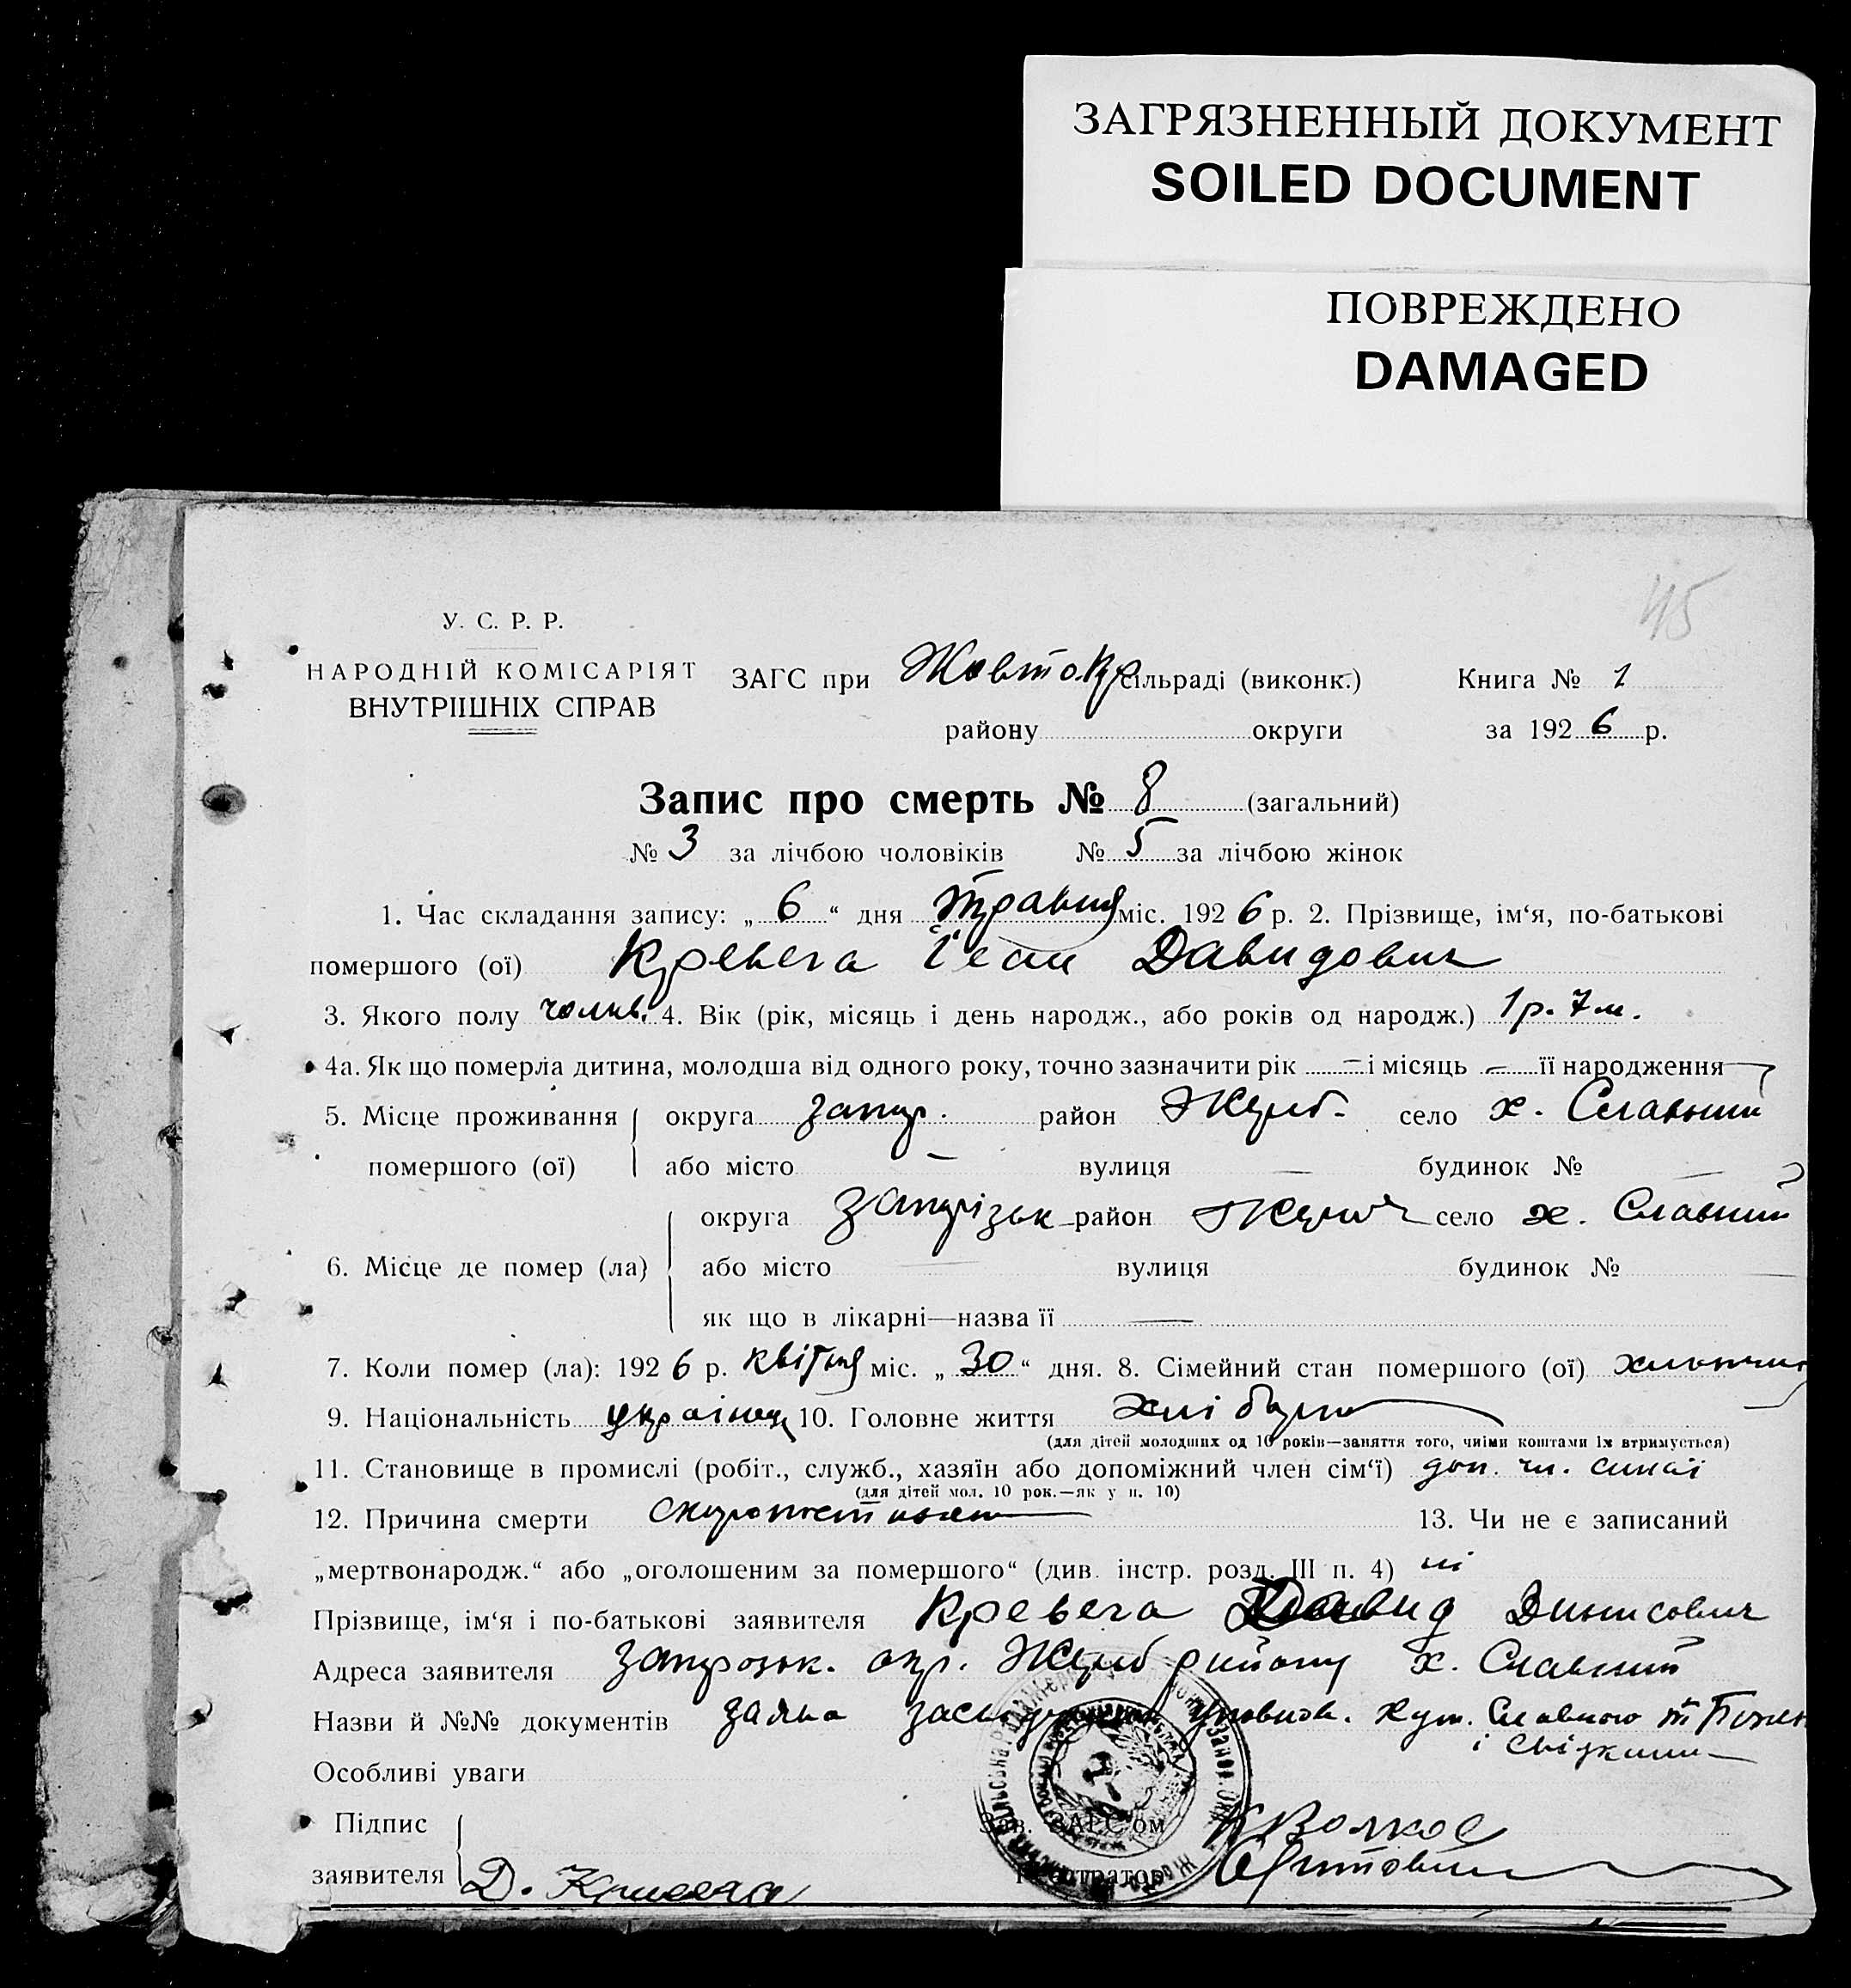 ЗАГРЯЗНЕННЫЙ ДОКУМЕНТ
SOILED DOCUMENT
ПОВРЕЖДЕНО
DAMAGED
45
У. С. Р. Р.
НАРОДНІЙ КОМІСАРІЯТ
ВНУТРІШНІХ СПРАВ
ЗАГС при Жовтокр сільраді (виконк.) Книга № 1
району округи за 1926 р.
Запис про смерть № 8 (загальний)
№ 3 за лічбою чоловіків № 5 за лічбою жінок
1. Час складання запису: „ 6 “ дня травня міс. 1926 р. 2. Прізвище, ім‘я, по-батькові
помершого (ої) Кревега Давидович
3. Якого полу чолов. 4. Вік (рік, місяць і день народж., або років од народж.) 1 р. 7 м.
4а. Як що померла дитина, молодша від одного року, точно зазначити рік — і місяць — її народження
5. Місце проживання округа запор. район Жереб. село х. Славний
помершого (ої) або місто — вулиця — будинок № —
округа Запорізьк район село х. Славний
6. Місце де помер (ла) або місто — вулиця будинок № —
як що в лікарні—назва її —
7. Коли помер (ла): 1926 р. квітня міс. „ 30 “ дня. 8. Сімейний стан помершого (ої)
9. Національність українец 10. Головне життя хлібороб
(для дітей молодших од 10 років—заняття того, чиїми коштами їх втримується)
11. Становище в промислі (робіт., служб., хазяїн або допоміжний член сім‘ї) доп. чл. сімї
(для дітей мол. 10 рок.—як у п. 10)
12. Причина смерти 13. Чи не є записаний
„мертвонародж.“ або „оголошеним за помершого“ (див. інстр. розд. III п. 4) ні
Прізвище, ім‘я і по-батькові заявителя Кревега Давид Динисович
Адреса заявителя Запорозьк. окр. Жереб району х. Славний
Назви й №№ документів заява уповнов. хут. Славного
і свідками
Особливі уваги
Підпис
заявителя Д. Кривега
Зав. ЗАГС‘ом Волков
Реєстратор